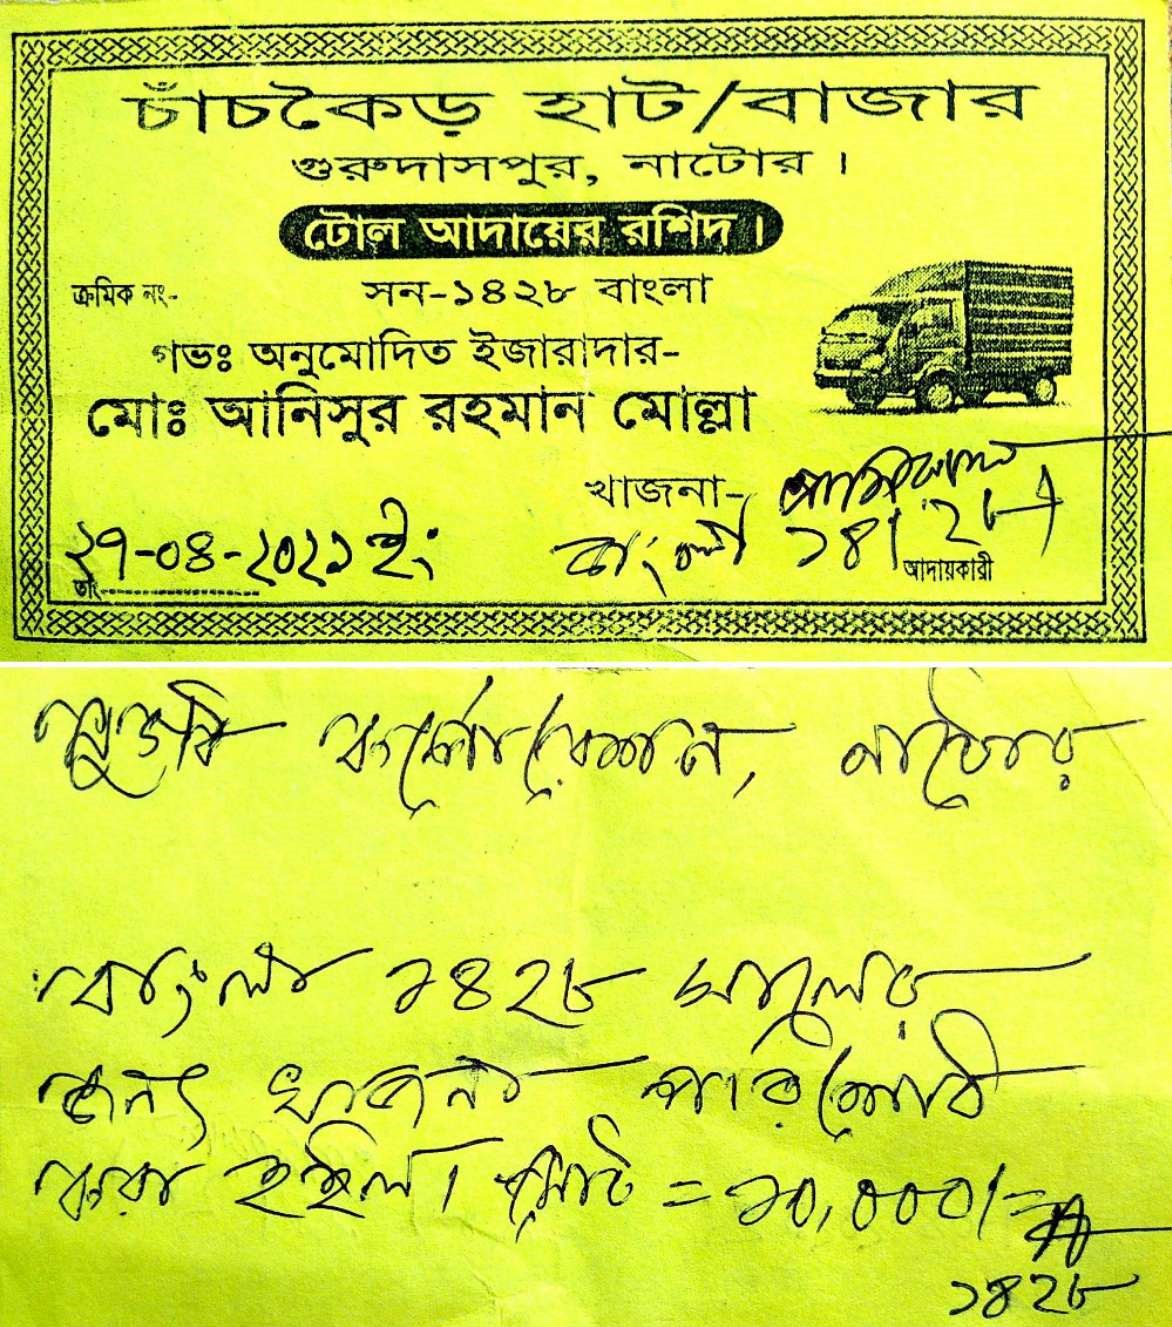 চাঁচকৈড় হাট/বাজার
গুরুদাসপুর, নাটোর।
টোল আদায়ের রশিদ।
ক্রমিক নং- সন-১৪২৮ বাংলা
গভঃ অনুমোদিত ইজারাদার-
মোঃ আনিসুর রহমান মোল্লা
খাজনা-
২৭-০৪-২০২১ ইং বাংলা
তাং- আদায়কারী
কর্পোরেশন, নাটোর
বাংলা ১৪২৮ সালের
জন্য খাজনা পরিশোধ
করা হইল। মোট = ১০,০০০/=
১৪২৮